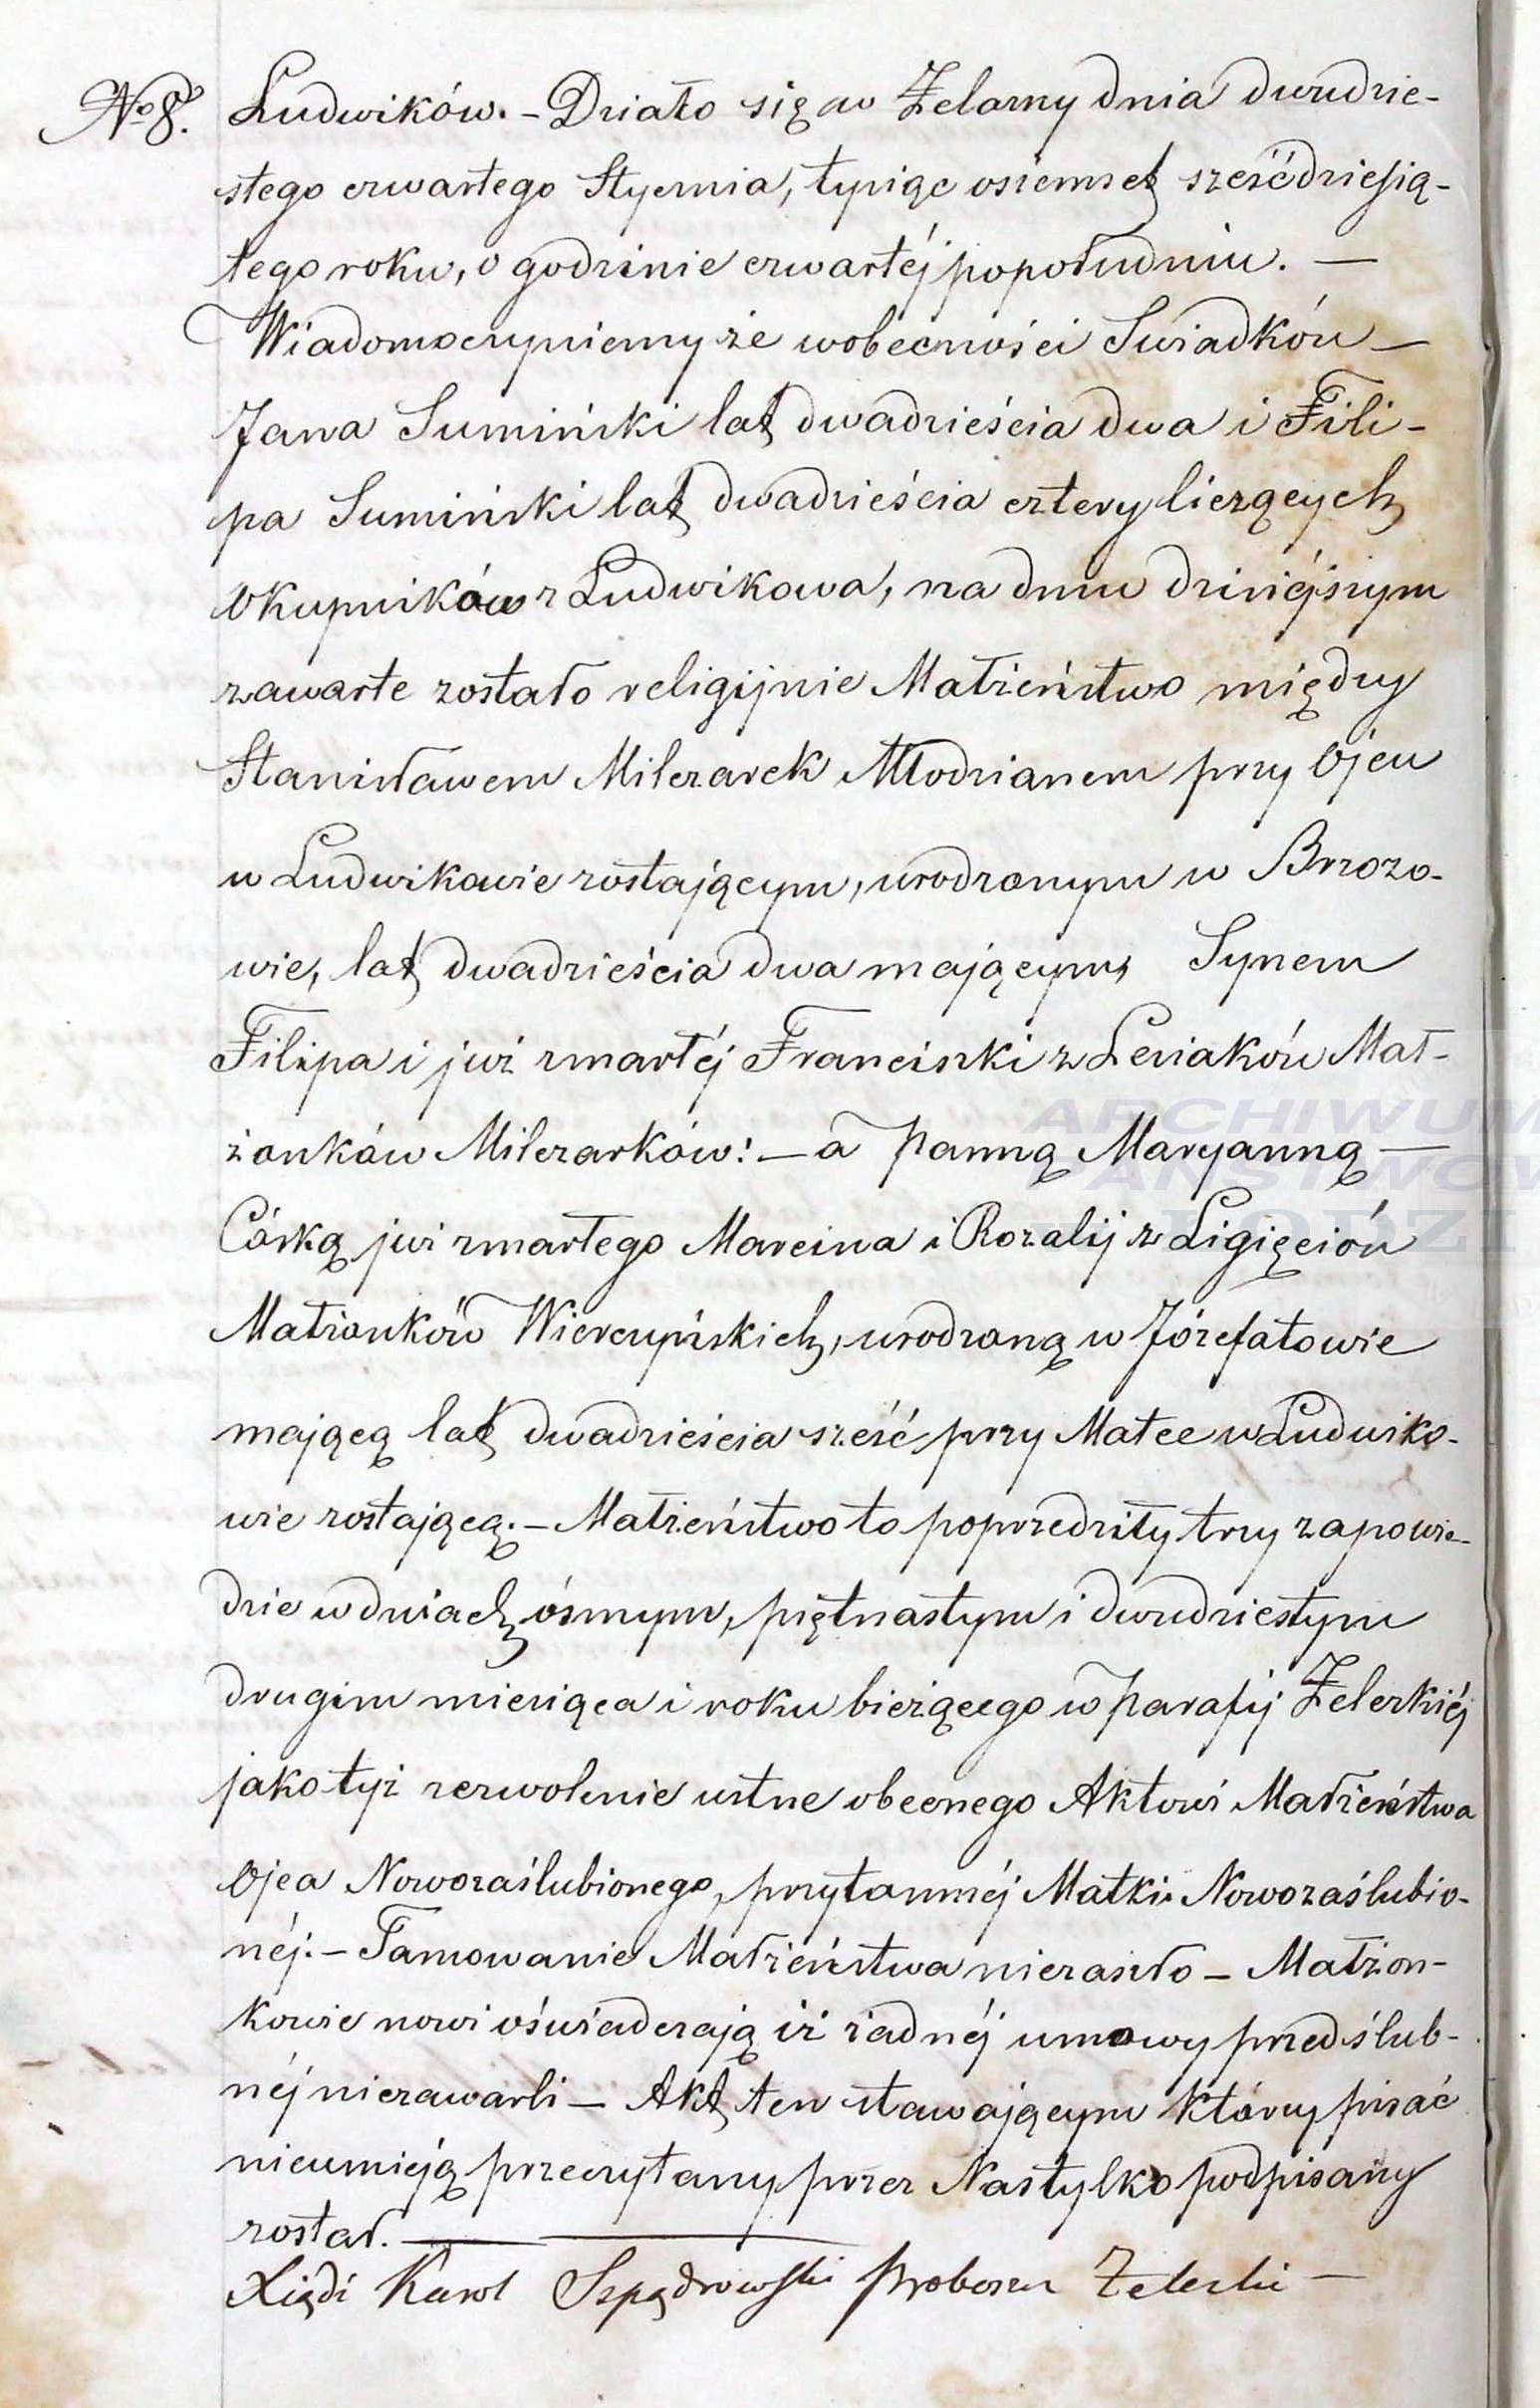 No 8. Ludwików. – Działo się w Żelazny dnia dwudzie-
stego czwartego Stycznia, tysiąc osiemset sześćdziesią-
tego roku, o godzinie czwartéj popołudniu. —
Wiadomo czyniemy że wobecności Swiadków —
Jana Sumiński lat dwadzieścia dwa i Fili-
pa Sumiński lat dwadzieścia cztery liczących
Okupników z Ludwikowa, na dniu dzisiéjszym
zawarte zostało religijnie Małżeństwo między
Stanisławem Milczarek Młodzianem przy Ojcu
w Ludwikowie zostającym, urodzonym w Brzozo-
wie, lat dwadzieścia dwa mającym, Synem
Filipa i już zmarłéj Franciszki z Lesiaków Mał-
żonków Milczarków: – a Panną Maryanną —
Córką już zmarłego Marcina i Rozalij z Ligięziów
Małżonków Wierczyńskich, urodzoną w Józefatowie
mającą lat dwadzieścia sześć przy Matce w Ludwiko-
wie zostającą. – Małżeństwo to poprzedziły trzy zapowie-
dzie w dniach ósmym, piętnastym i dwudziestym
drugim miesiąca i roku bieżącego w Parafij Żelerkiéj
jako tyż zezwolenie ustne obecnego Aktowi Małżeństwa
Ojca Nowozaślubionego, przytomnéj Matki Nowozaślubio-
néj. – Tamowanie Małżeństwa niezaszło – Małżon-
kowie nowi oświadczają iż żadnéj umowy przedślub-
néj niezawarli – Akt ten stawającym którzy pisać
nieumieją przeczytany przez Nas tylko podpisany
został. —
Xiądz Karol Szpądrowski Proboszcz Żelerki —
ARCHIWUM
PAŃSTWOW
ŁODZI